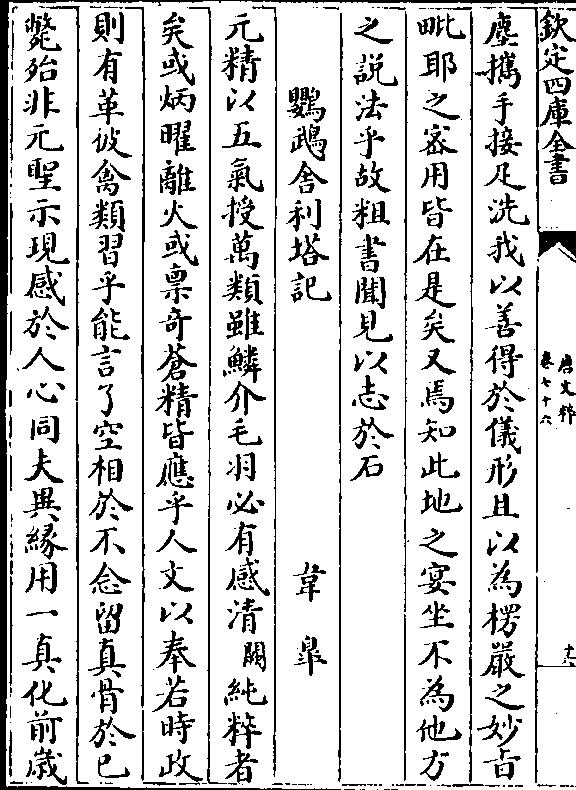 欽定四庫全書
唐文粹
卷七十六
十六
塵攜手接足洗我以善得於儀形且以為楞嚴之妙旨
毗耶之密用皆在是矣又焉知此地之宴坐不為他方
之説法乎故粗書聞見以志於石
鸚鵡舍利塔記
韋臯
元精以五氣授萬類雖鱗介毛羽必有感清闕純粹者
矣或炳曜離火或禀奇蒼精皆應乎人文以奉若時政
則有革彼禽類習乎能言了空相於不念留真骨於已
斃殆非元聖示現感於人心同夫異緣用一真化前歳